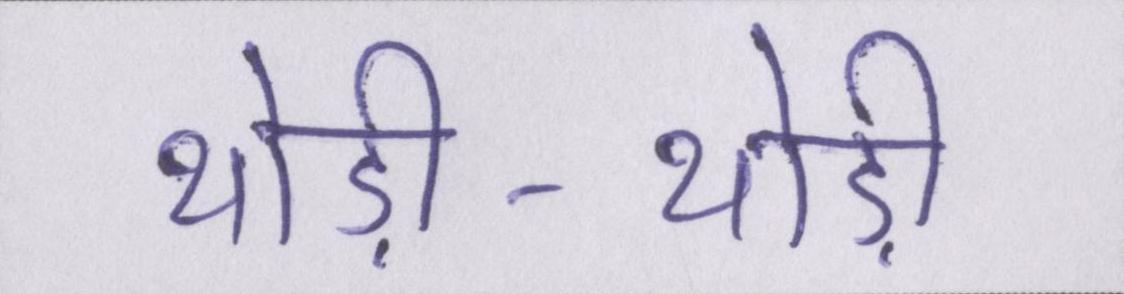 थोड़ी-थोड़ी